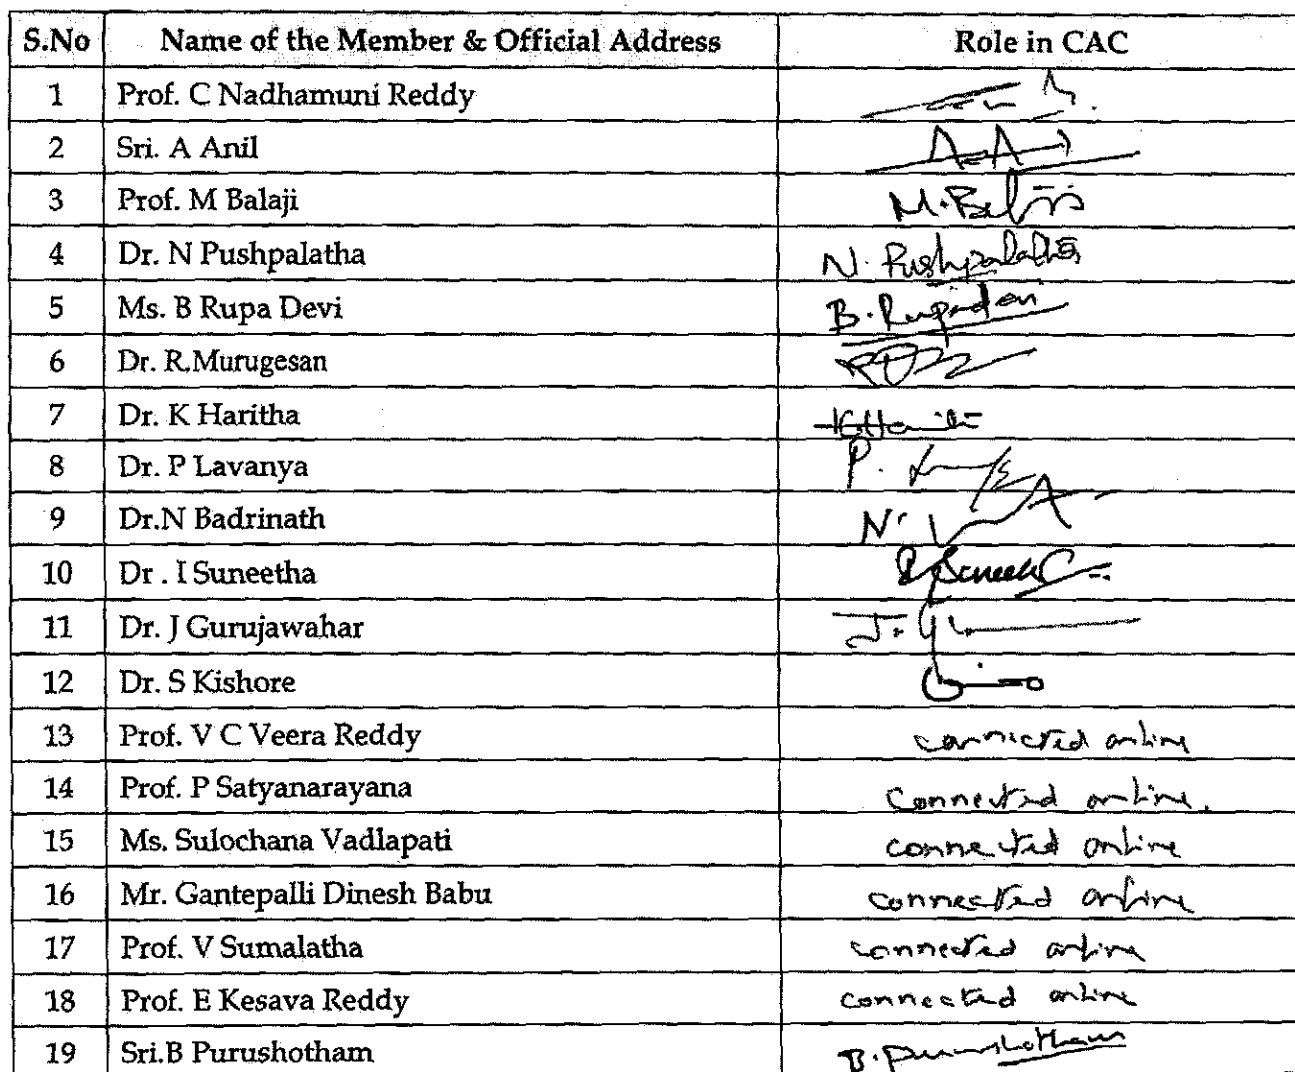 S.No Name of the Member & Official Address Role in CAC
1 Prof. C Nadhamuni Reddy
2 Sri. A Anil
3 Prof. M Balaji M. Balaji
4 Dr. N Pushpalatha N. Pushpalatha
5 Ms. B Rupa Devi B. Rupadevi
6 Dr. R.Murugesan
7 Dr. K Haritha
8 Dr. P Lavanya P.
9 Dr.N Badrinath N.
10 Dr . I Suneetha
11 Dr. J Gurujawahar J.
12 Dr. S Kishore
13 Prof. V C Veera Reddy connected online
14 Prof. P Satyanarayana Connected online.
15 Ms. Sulochana Vadlapati connected online
16 Mr. Gantepalli Dinesh Babu connected online
17 Prof. V Sumalatha connected online
18 Prof. E Kesava Reddy connected online
19 Sri.B Purushotham B. Purushotham